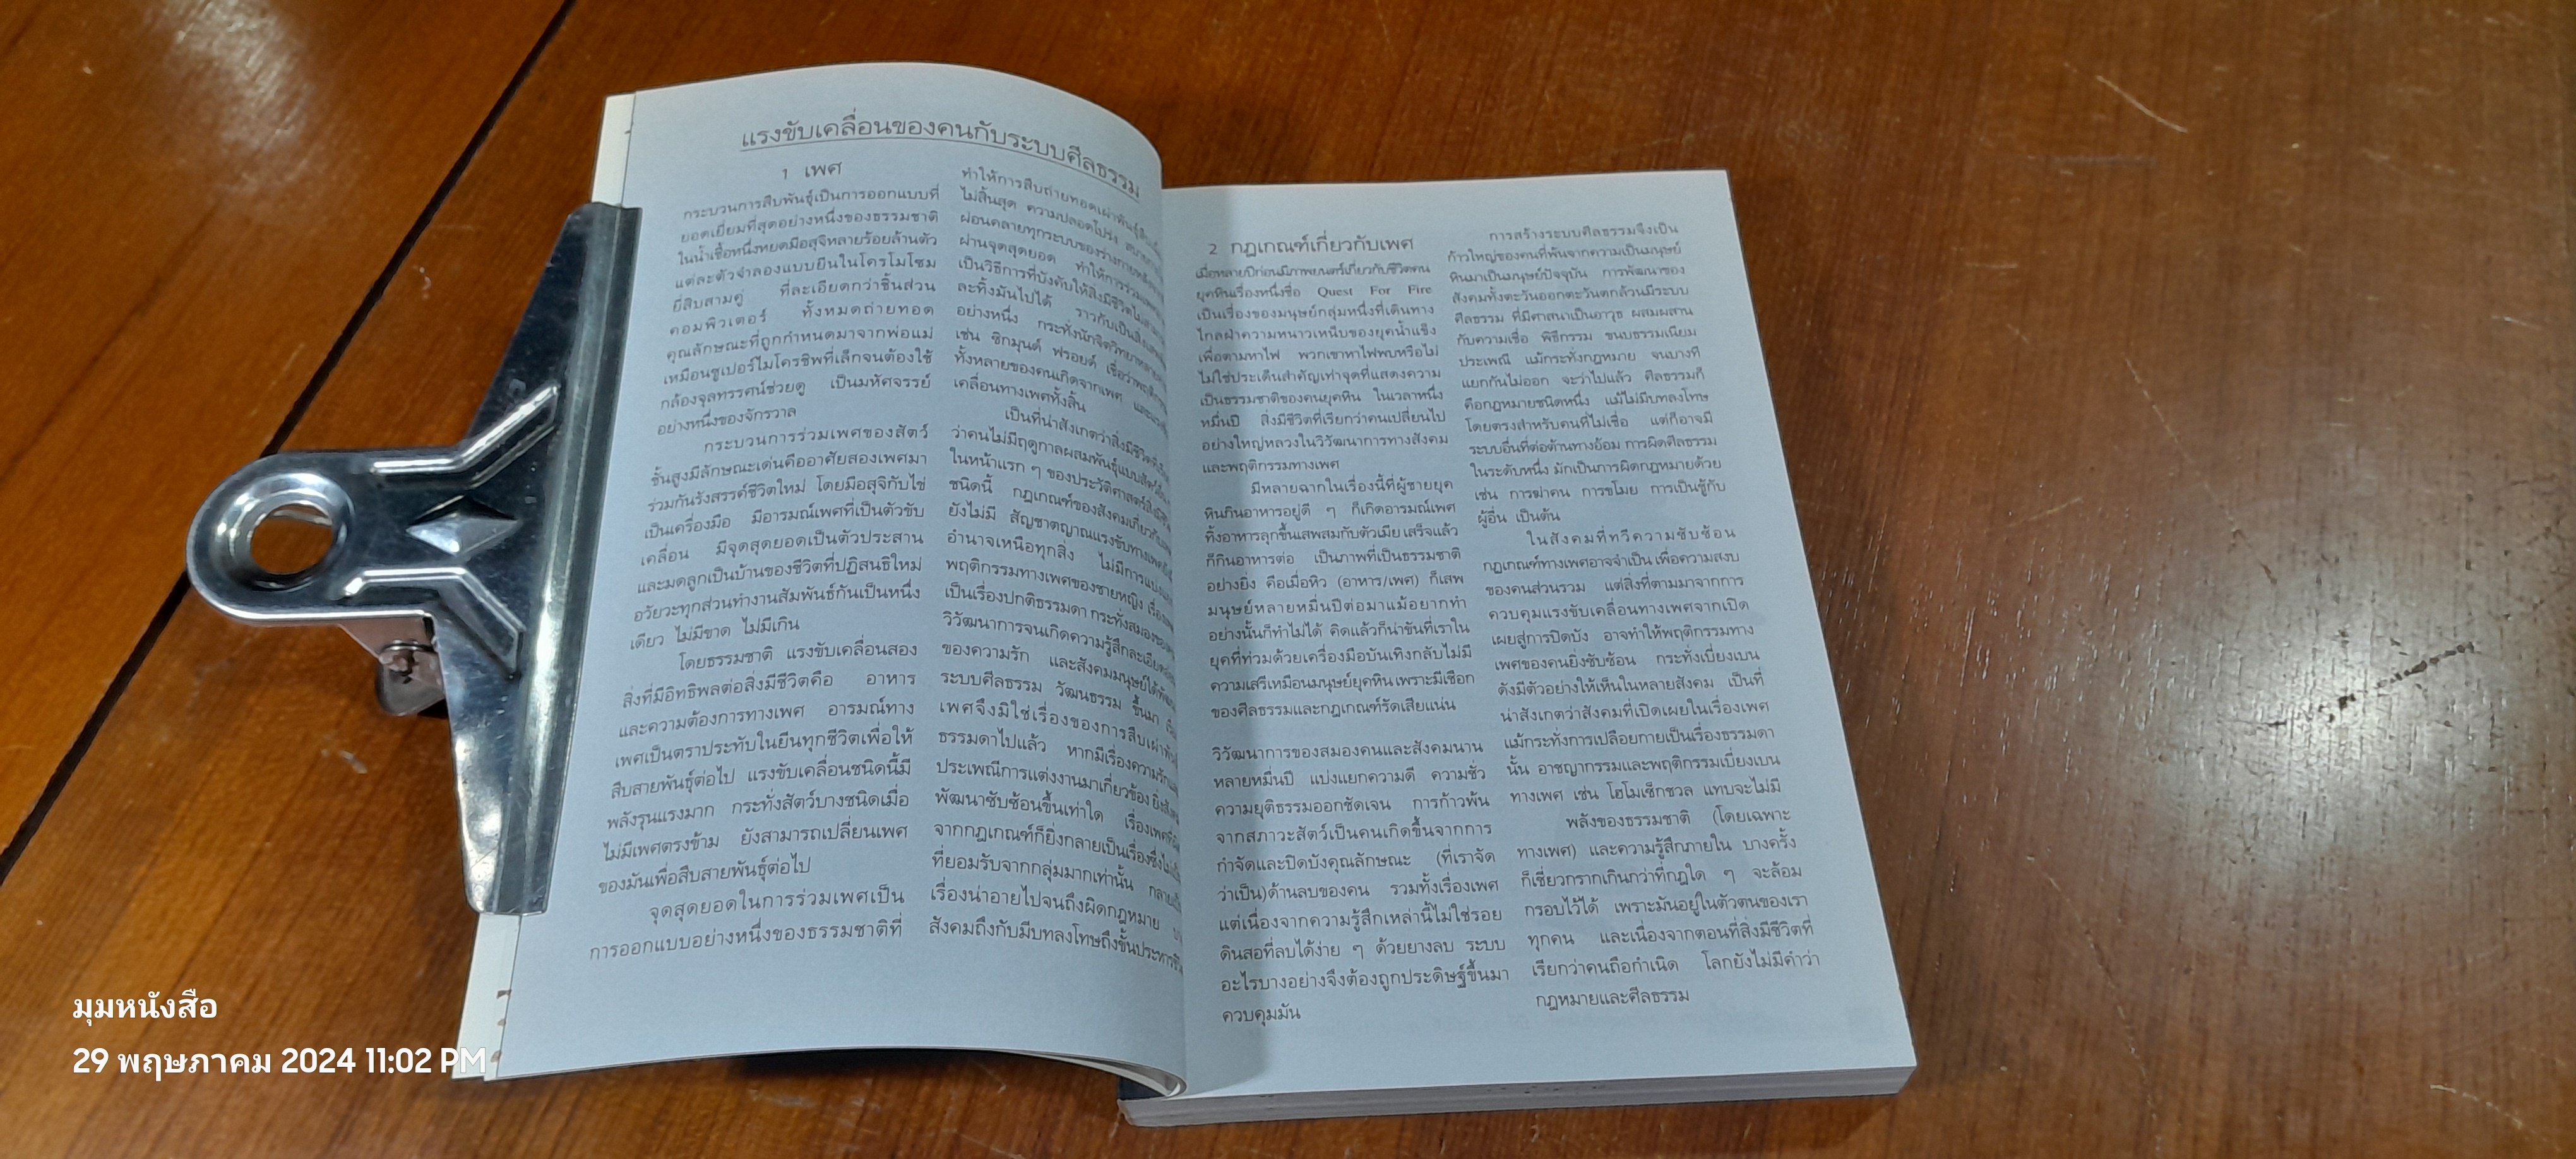 แรงขับเคลื่อนของคนกับระบบศีลธรรม
1 เพศ
กระบวนการสืบพันธุ์เป็นการออกแบบที่
ยอดเยี่ยมที่สุดอย่างหนึ่งของธรรมชาติ
ในน้ำเชื้อหนึ่งหยดมีอสุจิหลายร้อยล้านตัว
แต่ละตัวจำลองแบบยีนในโครโมโซม
ยี่สิบสามคู่ ที่ละเอียดกว่าชิ้นส่วน
คอมพิวเตอร์ ทั้งหมดถ่ายทอด
คุณลักษณะที่ถูกกำหนดมาจากพ่อแม่
เหมือนซูเปอร์ไมโครชิพที่เล็กจนต้องใช้
กล้องจุลทรรศน์ช่วยดู เป็นมหัศจรรย์
อย่างหนึ่งของจักรวาล
กระบวนการร่วมเพศของสัตว์
ชั้นสูงมีลักษณะเด่นคืออาศัยสองเพศมา
ร่วมกันรังสรรค์ชีวิตใหม่ โดยมีอสุจิกับไข่
เป็นเครื่องมือ มีอารมณ์เพศที่เป็นตัวขับ
เคลื่อน มีจุดสุดยอดเป็นตัวประสาน
และมดลูกเป็นบ้านของชีวิตที่ปฏิสนธิใหม่
อวัยวะทุกส่วนทำงานสัมพันธ์กันเป็นหนึ่ง
เดียว ไม่มีขาด ไม่มีเกิน
โดยธรรมชาติ แรงขับเคลื่อนสอง
สิ่งที่มีอิทธิพลต่อสิ่งมีชีวิตคือ อาหาร
และความต้องการทางเพศ อารมณ์ทาง
เพศเป็นตราประทับในยีนทุกชีวิตเพื่อให้
สืบสายพันธุ์ต่อไป แรงขับเคลื่อนชนิดนี้มี
พลังรุนแรงมาก กระทั่งสัตว์บางชนิดเมื่อ
ไม่มีเพศตรงข้าม ยังสามารถเปลี่ยนเพศ
ของมันเพื่อสืบสายพันธุ์ต่อไป
จุดสุดยอดในการร่วมเพศเป็น
การออกแบบอย่างหนึ่งของธรรมชาติที่
ทำให้การสืบถ่ายทอดเผ่าพันธุ์
ไม่สิ้นสุด ความปลอดโปร่ง
ผ่อนคลายทุกระบบของร่างกาย
ผ่านจุดสุดยอด ทำให้การร่วมเพศ
เป็นวิธีการที่บังคับให้สิ่งมีชีวิตไม่
ละทิ้งมันไปได้ ราวกับเป็น
อย่างหนึ่ง กระทั่งนักจิตวิทยา
เช่น ซิกมุนด์ ฟรอยด์ เชื่อว่า
ทั้งหลายของคนเกิดจากเพศ
เคลื่อนทางเพศทั้งสิ้น
เป็นที่น่าสังเกตว่าสิ่งมีชีวิต
ว่าคนไม่มีฤดูกาลผสมพันธุ์แบบสัตว์อื่น
ในหน้าแรก ๆ ของประวัติศาสตร์
ชนิดนี้ กฎเกณฑ์ของสังคมเกี่ยวกับ
ยังไม่มี สัญชาตญาณแรงขับทางเพศ
อำนาจเหนือทุกสิ่ง ไม่มีการ
พฤติกรรมทางเพศของชายหญิง
เป็นเรื่องปกติธรรมดา กระทั่งสมองของ
วิวัฒนาการจนเกิดความรู้สึกละเอียดอ่อน
ของความรัก และสังคมมนุษย์ได้
ระบบศีลธรรม วัฒนธรรม ขึ้นมา
เพศจึงมิใช่เรื่องของการสืบเผ่าพันธุ์
ธรรมดาไปแล้ว หากมีเรื่องความรัก
ประเพณีการแต่งงานมาเกี่ยวข้อง
พัฒนาซับซ้อนขึ้นเท่าใด เรื่องเพศ
จากกฎเกณฑ์ก็ยิ่งกลายเป็นเรื่อง
ที่ยอมรับจากกลุ่มมากเท่านั้น กลาย
เรื่องน่าอายไปจนถึงผิดกฎหมาย
สังคมถึงกับมีบทลงโทษถึงขั้นประหารชีวิต
2 กฎเกณฑ์เกี่ยวกับเพศ
เมื่อหลายปีก่อนมีภาพยนตร์เกี่ยวกับชีวิตคน
ยุคหินเรื่องหนึ่งชื่อ Quest For Fire
เป็นเรื่องของมนุษย์กลุ่มหนึ่งที่เดินทาง
ไกลฝ่าความหนาวเหน็บของยุคน้ำแข็ง
เพื่อตามหาไฟ พวกเขาหาไฟพบหรือไม่
ไม่ใช่ประเด็นสำคัญเท่าจุดที่แสดงความ
เป็นธรรมชาติของคนยุคหิน ในเวลาหนึ่ง
หมื่นปี สิ่งมีชีวิตที่เรียกว่าคนเปลี่ยนไป
อย่างใหญ่หลวงในวิวัฒนาการทางสังคม
และพฤติกรรมทางเพศ
มีหลายฉากในเรื่องนี้ที่ผู้ชายยุค
หินกินอาหารอยู่ดี ๆ ก็เกิดอารมณ์เพศ
ทิ้งอาหารลุกขึ้นเสพสมกับตัวเมีย เสร็จแล้ว
ก็กินอาหารต่อ เป็นภาพที่เป็นธรรมชาติ
อย่างยิ่ง คือเมื่อหิว (อาหาร/เพศ) ก็เสพ
มนุษย์หลายหมื่นปีต่อมาแม้อยากทำ
อย่างนั้นก็ทำไม่ได้ คิดแล้วก็น่าขันที่เราใน
ยุคที่ท่วมด้วยเครื่องมือบันเทิงกลับไม่มี
ความเสรีเหมือนมนุษย์ยุคหิน เพราะมีเชือก
ของศีลธรรมและกฎเกณฑ์รัดเสียแน่น
วิวัฒนาการของสมองคนและสังคมนาน
หลายหมื่นปี แบ่งแยกความดี ความชั่ว
ความยุติธรรมออกชัดเจน การก้าวพ้น
จากสภาวะสัตว์เป็นคนเกิดขึ้นจากการ
กำจัดและปิดบังคุณลักษณะ (ที่เราจัด
ว่าเป็น)ด้านลบของคน รวมทั้งเรื่องเพศ
แต่เนื่องจากความรู้สึกเหล่านี้ไม่ใช่รอย
ดินสอที่ลบได้ง่าย ๆ ด้วยยางลบ ระบบ
อะไรบางอย่างจึงต้องถูกประดิษฐ์ขึ้นมา
ควบคุมมัน
การสร้างระบบศีลธรรมจึงเป็น
ก้าวใหญ่ของคนที่พ้นจากความเป็นมนุษย์
หินมาเป็นมนุษย์ปัจจุบัน การพัฒนาของ
สังคมทั้งตะวันออกตะวันตกล้วนมีระบบ
ศีลธรรม ที่มีศาสนาเป็นอาวุธ ผสมผสาน
กับความเชื่อ พิธีกรรม ขนบธรรมเนียม
ประเพณี แม้กระทั่งกฎหมาย จนบางที
แยกกันไม่ออก จะว่าไปแล้ว ศีลธรรมก็
คือกฎหมายชนิดหนึ่ง แม้ไม่มีบทลงโทษ
โดยตรงสำหรับคนที่ไม่เชื่อ แต่ก็อาจมี
ระบบอื่นที่ต่อต้านทางอ้อม การผิดศีลธรรม
ในระดับหนึ่ง มักเป็นการผิดกฎหมายด้วย
เช่น การฆ่าคน การขโมย การเป็นชู้กับ
ผู้อื่น เป็นต้น
ในสังคมที่ทวีความซับซ้อน
กฎเกณฑ์ทางเพศอาจจำเป็น เพื่อความสงบ
ของคนส่วนรวม แต่สิ่งที่ตามมาจากการ
ควบคุมแรงขับเคลื่อนทางเพศจากเปิด
เผยสู่การปิดบัง อาจทำให้พฤติกรรมทาง
เพศของคนยิ่งซับซ้อน กระทั่งเบี่ยงเบน
ดังมีตัวอย่างให้เห็นในหลายสังคม เป็นที่
น่าสังเกตว่าสังคมที่เปิดเผยในเรื่องเพศ
แม้กระทั่งการเปลือยกายเป็นเรื่องธรรมดา
นั้น อาชญากรรมและพฤติกรรมเบี่ยงเบน
ทางเพศ เช่น โฮโมเซ็กชวล แทบจะไม่มี
พลังของธรรมชาติ (โดยเฉพาะ
ทางเพศ) และความรู้สึกภายใน บางครั้ง
ก็เชี่ยวกรากเกินกว่าที่กฎใด ๆ จะล้อม
กรอบไว้ได้ เพราะมันอยู่ในตัวตนของเรา
ทุกคน และเนื่องจากตอนที่สิ่งมีชีวิตที่
เรียกว่าคนถือกำเนิด โลกยังไม่มีคำว่า
กฎหมายและศีลธรรม
มุมหนังสือ
29 พฤษภาคม 2024 11:02 PM